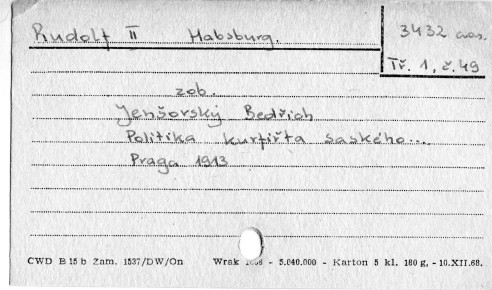 Rudolf II Habsburg.
3432 cvas.
Tř. 1, č. 49
zob.
Jenšovský Bedřich
Politika kurfiřta saského...
Praga 1913
CWD B 15 b Zam. 1537/DW/On Wrak - 5.040.000 - Karton 5 kl. 180 g, - 10.XII.68.